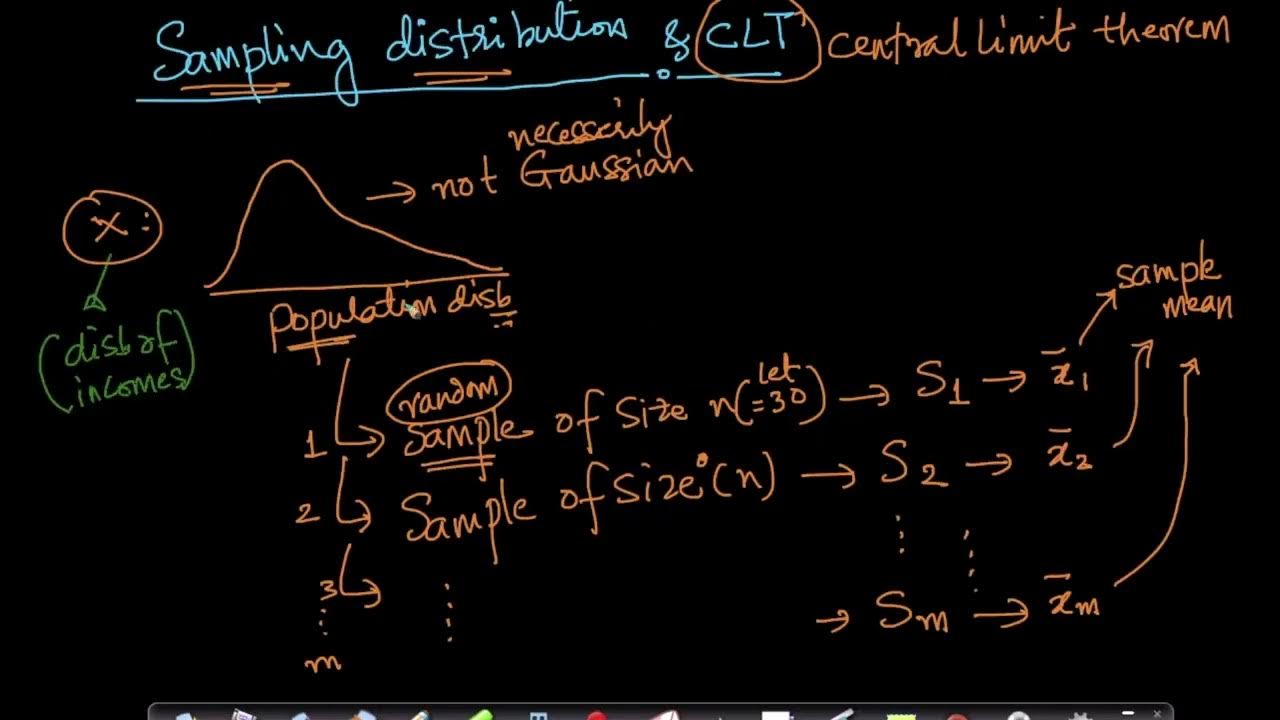 Sampling distribution & CLT central limit theorem
necesserily
→ not Gaussian
X :
(disb of
incomes)
Population disb
sample
mean
random
1 Sample of size n (let =30) → S₁ → x̄₁
2 Sample of size (n) → S₂ → x̄₂
3
⋮
m
→ Sₘ → x̄ₘ